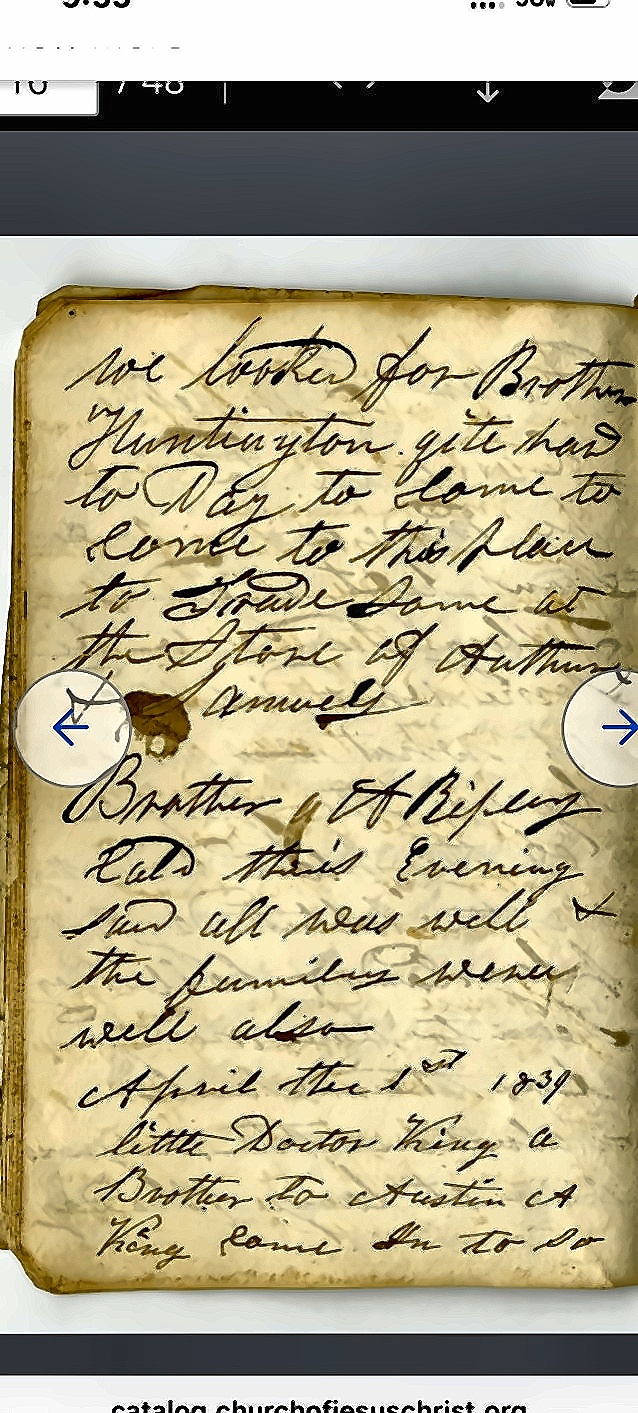 we looked for Brother
Huntington gite had
to Day to Come to
Come to this place
to Trade Some at
the Store of Arthur
Samuels
Brother A Ripley
Cald this Evening
said all was well &
the familys were
well also
April the 1st 1839
little Doctor King a
Brother to Austin A
King Came In to So
16 / 48
catalog.churchofjesuschrist.org